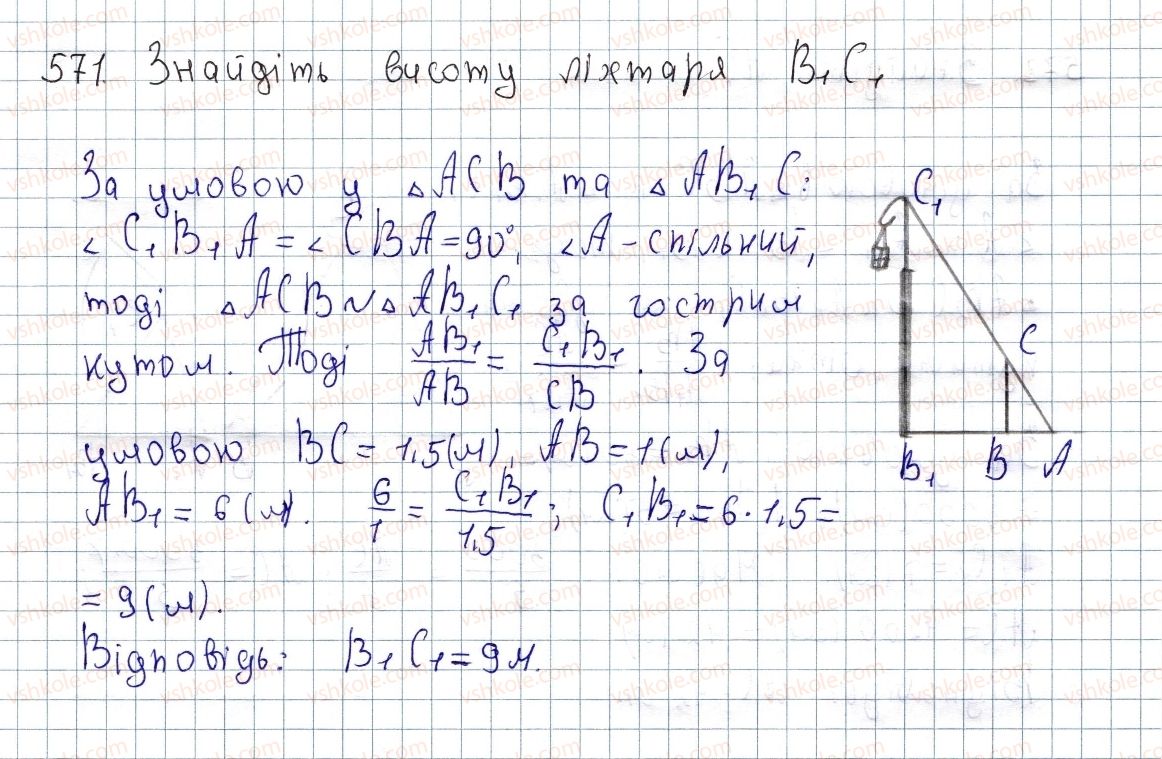 571. Знайдіть висоту ліхтаря B₁C₁
За умовою у △ACB та △AB₁C:
∠C₁B₁A = ∠CBA = 90°, ∠A - спільний,
тоді △ACB ~ △AB₁C₁ за гострим
кутом. Тоді AB₁/AB = C₁B₁/CB. За
умовою BC = 1,5(м), AB = 1(м),
AB₁ = 6(м). 6/1 = C₁B₁/1,5; C₁B₁ = 6·1,5 =
= 9(м).
Відповідь: B₁C₁ = 9м.
C₁
C
B₁ B A
vshkole.com